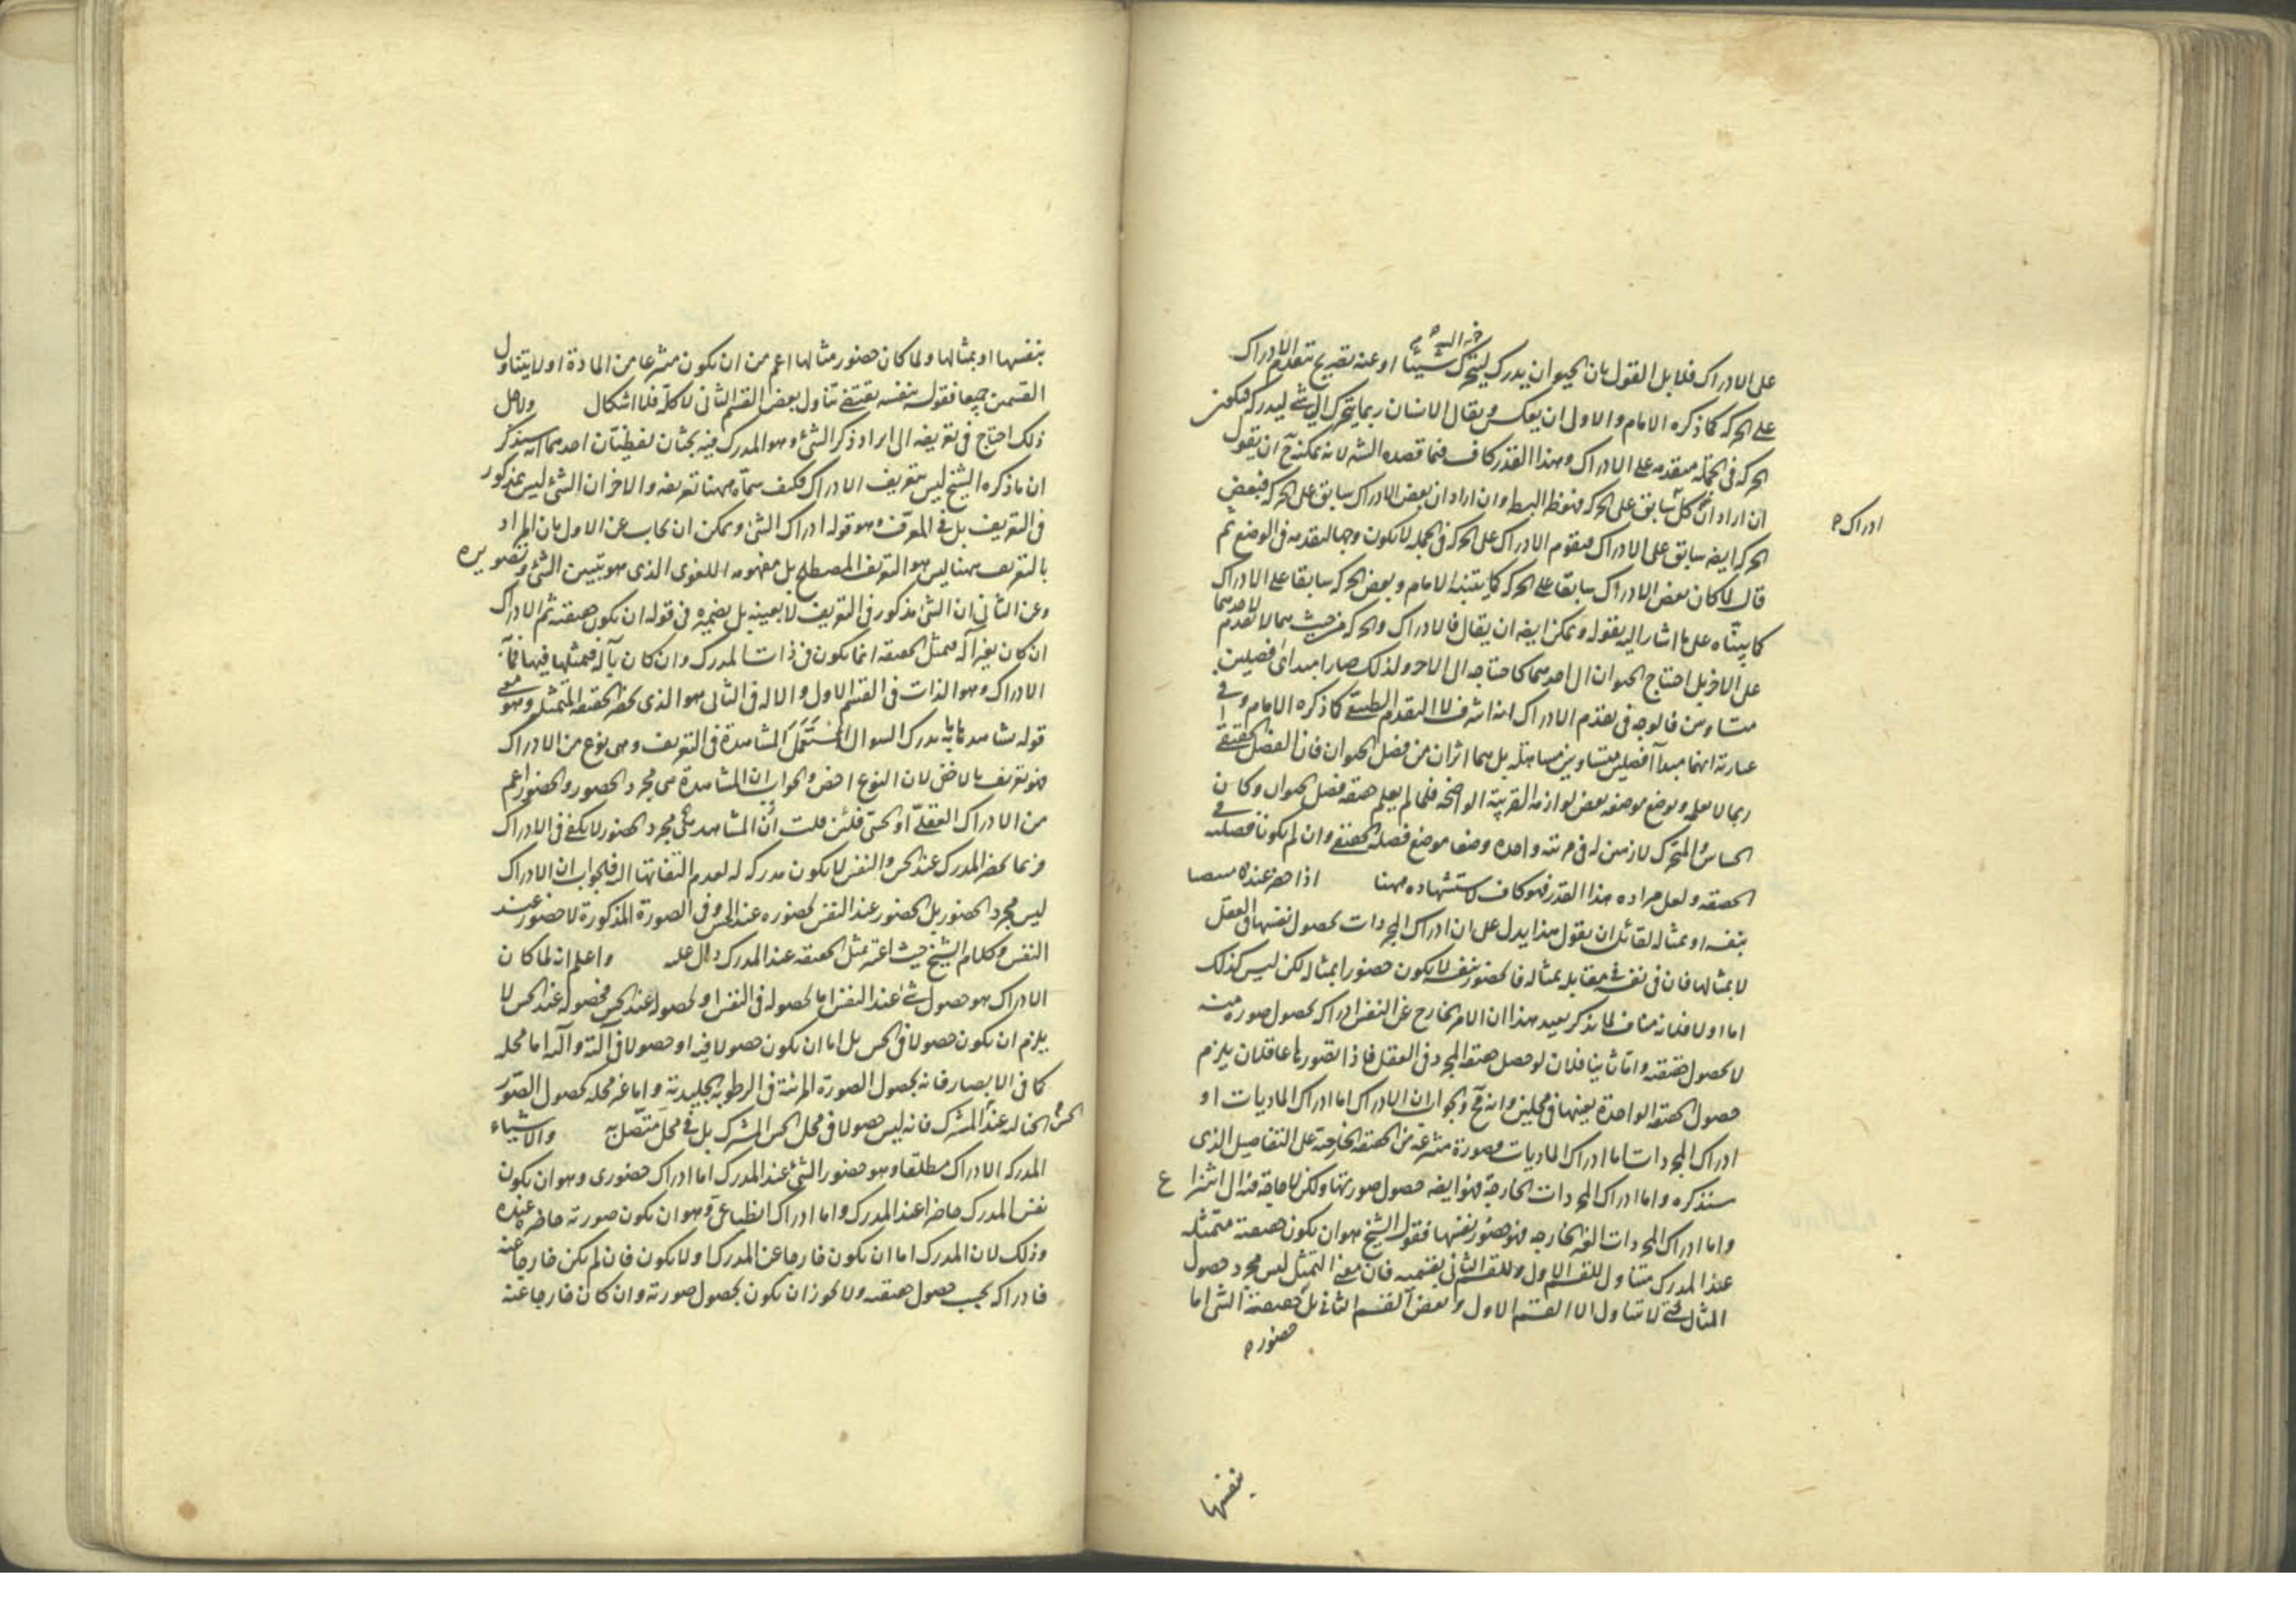 على الادراك فلقابل القول بان الحيوان يدرك ليتحرك شيئا او عنه تصريح بتقدم الادراك
على الحركة كما ذكره الامام والاولى ان يعكس ويقال الانسان ربما يتحرك الى شئ ليدركه فيكون
الحركة فى الجملة متقدمة على الادراك وهذا القدر كاف فيما قصده الشه لانه يمكنه ح ان يقول
ان اراد ان كل سابق على الحركة فهو ظ البط وان اراد ان بعض الادراك سابق على الحركة فبعض
ادراك
الحركة ايضه سابق على الادراك فتقدم الادراك على الحركة فى الجملة لا يكون وجها لتقدمه فى الوضع ثم
قال لما كان بعض الادراك سابقا على الحركة كما بينه الامام وبعض الحركة سابقا على الادراك
كما بيناه على ما اشار اليه بقوله ويمكن ايضه ان يقال فالادراك والحركة من حيث هما لا تقدم لاحدهما
على الاخر بل احتياج الحيوان الى احدهما كاحتياجه الى الاخر ولذلك صارا مبدأى فصلين
متساويين فالوجه فى تقدم الادراك انه اشرف لا التقدم الطبيعى كما ذكره الامام وفى
عبارته انهما مبدآ فصلين متساويين مساهلة بل هما اثران من فصل الحيوان فان الفصل الحقيقى
ربما لا يعلم ويوضع موضعه بعض لوازمه القريبة الواضحة فلما لم يعلم حقيقة فصل الحيوان وكان
الحساس والمتحرك لازمين له فى مرتبة واحدة وضعا موضع فصله الحقيقى وان لم يكونا فصلين فى
الحقيقة ولعل مراده هذا القدر فهو كاف لاستشهاده ههنا اذا حضر عنده
بنفسه او بمثاله لقائل ان يقول هذا يدل على ان ادراك المجردات بحصول نفسها فى العقل
لا بمثالها فان فى نفسه مقابله بمثاله فالحضور بنفسه لا يكون حضورا بمثاله لكن ليس كذلك
اما اولا فلانه مناف لما يذكر بعيد هذا ان الامر الخارج عن النفس ادراكه بحصول صورة منه
لا بحصول حقيقته واما ثانيا فلان لو حصل حقيقة المجرد فى العقل فاذا تصورها عاقلان يلزم
حصول الحقيقة الواحدة بعينها فى محلين وانه مح والجواب ان الادراك اما ادراك الماديات او
ادراك المجردات اما ادراك الماديات فبصورة منتزعة من الحقيقة الخارجة على التفاصيل الذى
سنذكره واما ادراك المجردات الخارجة فهو ايضه حصول صورتها ولكن لا حاجة فيه الى انتزاع
واما ادراك المجردات الغير الخارجه فهو حضور نفسها فقول الشيخ هو ان يكون حقيقته متمثلة
عند المدرك متناول للقسم الاول وللقسم الثانى بقسميه فان معنى التمثل ليس مجرد حصول
المثال حتى لا يتناول الا القسم الاول وبعض القسم الثانى بل حقيقة الشئ اما
حضوره
نفسها
بنفسها او بمثالها ولما كان حضور مثالها اعم من ان يكون منتزعا من المادة او لا يتناول
القسمين جميعا فقوله بنفسه يقتضى تناول بعض القسم الثانى لا كله فلا اشكال ولاجل
ذلك احتاج فى تعريفه الى ايراد ذكر الشئ وهو المدرك فيه بحثان لفظيتان احدهما انه سيذكر
ان ما ذكره الشيخ ليس تعريف الادراك فكيف سماه ههنا تعريفه والاخر ان الشئ ليس بمذكور
فى التعريف بل فى المعرف وهو قوله ادراك الشئ ويمكن ان يجاب عن الاول بان المراد
بالتعريف ههنا ليس هو التعريف المصطلح بل مفهومه اللغوى الذى هو تبيين الشئ وتصويره
وعن الثانى ان الشئ مذكور فى التعريف لا بعينه بل بضميره فى قوله ان يكون حقيقته ثم الادراك
ان كان بغير آلة فتمثل الحقيقة انما يكون فى ذات المدرك وان كان بآلة فتمثلها فيها فما به
الادراك وهو الذات فى القسم الاول والالة فى الثانى هو الذى يحضره الحقيقة المتمثلة وهو معنى
قوله يشاهدها ما به يدرك السؤال استعمل المشاهدة فى التعريف وهى نوع من الادراك
فهو تعريف بالاخفى لان النوع اخفى والجواب ان المشاهدة هى مجرد الحضور والحضور اعم
من الادراك العقلى او الحسى فلئن قلت ان المشاهدة هى مجرد الحضور لا يكفى فى الادراك
فربما يحضر المدرك عند الحس والنفس لا يكون مدركة له لعدم التفاتها اليه فالجواب ان الادراك
ليس مجرد الحضور بل الحضور عند النفس لحضوره عند الحس وفى الصورة المذكورة لا حضور عند
النفس وكلام الشيخ حيث اعتبر تمثل الحقيقة عند المدرك دال عليه واعلم انه لما كان
الادراك هو حصول شئ عند النفس اما لحصوله فى النفس او لحصوله عند الحس فحصوله عند الحس لا
يلزم ان يكون حصولا فى الحس بل اما ان يكون حصولا فيه او حصولا فى آلته وآلته اما محله
كما فى الابصار فانه بحصول الصورة المرئية فى الرطوبة الجليدية واما غير محله كحصول الصور
الخيالية عند الحس المشترك فانه ليس حصولا فى محل الحس المشترك بل فى محل متصل به والاشياء
المدركة الادراك مطلقا وهو حضور الشئ عند المدرك اما ادراك حضورى وهو ان يكون
نفس المدرك حاضرا عند المدرك واما ادراك انطباعى وهو ان يكون صورته حاضرة عنده
وذلك لان المدرك اما ان يكون خارجا عن المدرك او لا يكون فان لم يكن خارجا عنه
فادراكه بحسب حصول حقيقته ولا يجوز ان يكون بحصول صورته وان كان خارجا عنه